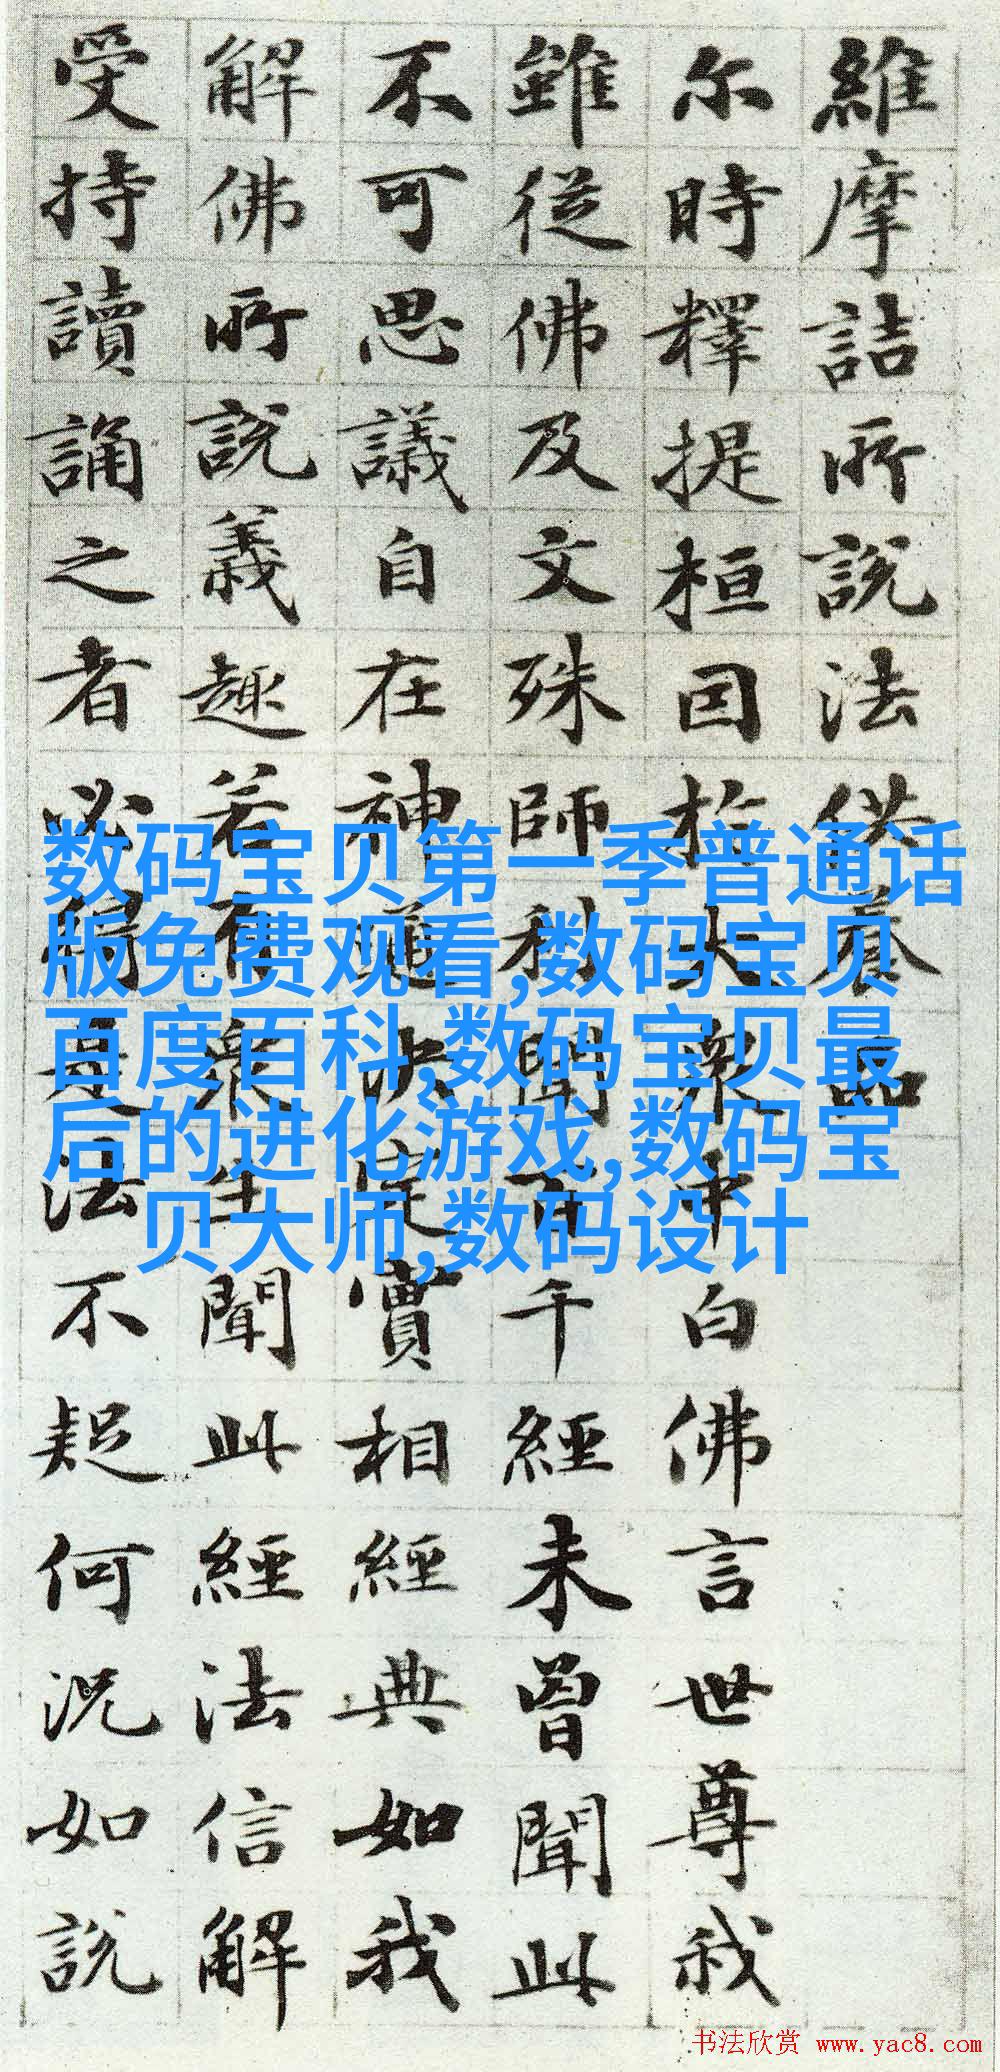 維摩詰所說法供養品
尔時釋提桓因於大眾中白佛言世尊我
雖從佛及文殊師利聞百千經未曾聞此
不可思議自在神通決定實相經典如我
解佛所說義趣若有眾生聞此經法信解
受持讀誦之者必得是法不疑何況如說
数码宝贝第一季普通话
版免费观看,数码宝贝
百度百科,数码宝贝最
后的进化游戏,数码宝
贝大师,数码设计
书法欣赏 www.yac8.com